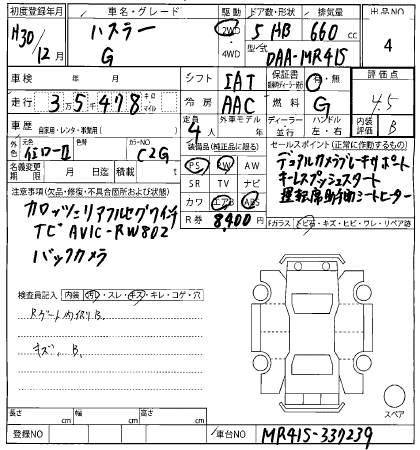 初度登録年月 車名・グレード 駆動 ドア数・形状 排気量 出品NO
H30/12月 ハスラー G 2WD・4WD 5 HB 660 cc 4
型式 DAA-MR41S
車検 年 月 シフト IAT 保証書 有・無 評価点
走行 35478 キロ マイル 冷房 AAC 燃料 G 4.5
車歴 自家用・レンタ・事業用( ) 定員 4人 外車モデル 年 ディーラー・並行 ハンドル 左・右 内装評価 B
外色 元色 カラーNO C2G
名義変更期限 月 日迄 積載量 t
装備品(純正品に限る) セールスポイント(正常に作動するもの)
PS PW AW デュアルカメラブレーキサポート
SR TV ナビ キーレスプッシュスタート
カワ エアB ABS 運転席助手席シートヒーター
R券 8,400円
注意事項(欠品・修復・不具合箇所および状態)
カロッツェリアフルセグワイド
TC AVIC-RW802
バックカメラ
Fガラス トビ石・キズ・ヒビ・ワレ・リペア跡
検査員記入 内装 汚・スレ・キズ・キレ・コゲ・穴
キズ B
スペア
長さ cm 幅 cm 高さ cm
登録NO 車台NO MR41S-337239